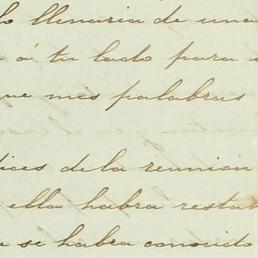 lo llenaria de una
á tu lado para
que mis palabras
dices de la reunión
ella habra
se habra conocido